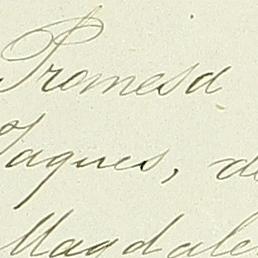 Promesa
Yaques, de
Magdale